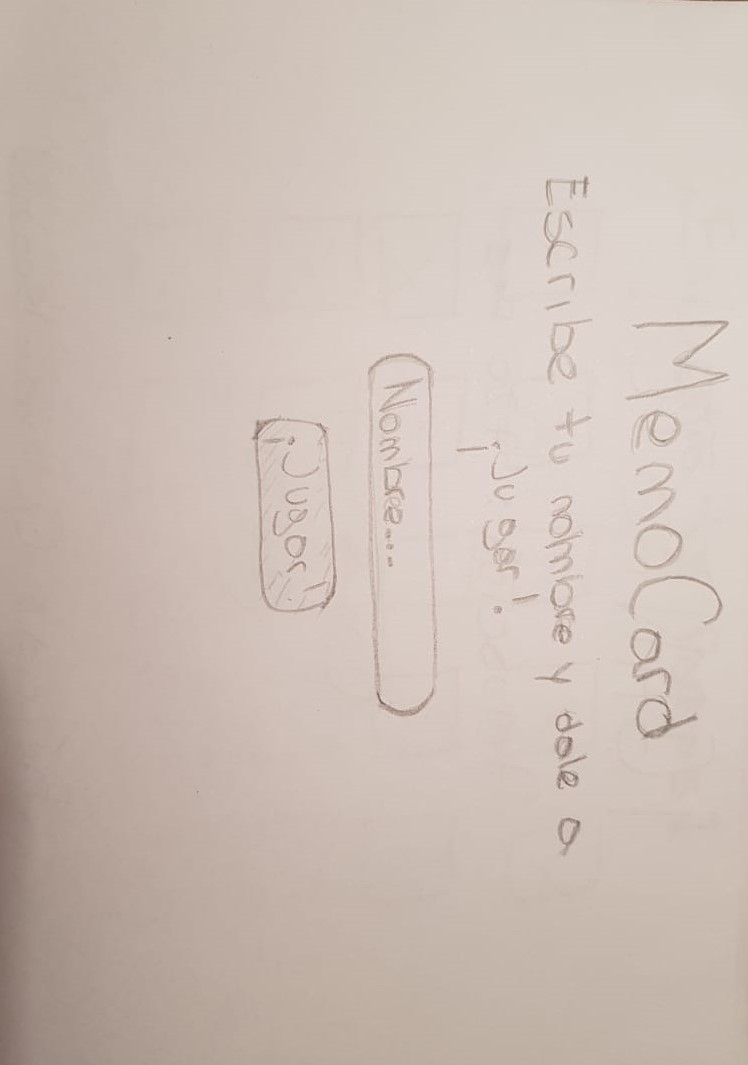 MemoCard
Escribe tu nombre y dale a
¡Jugar!.
Nombre...
¡Jugar!